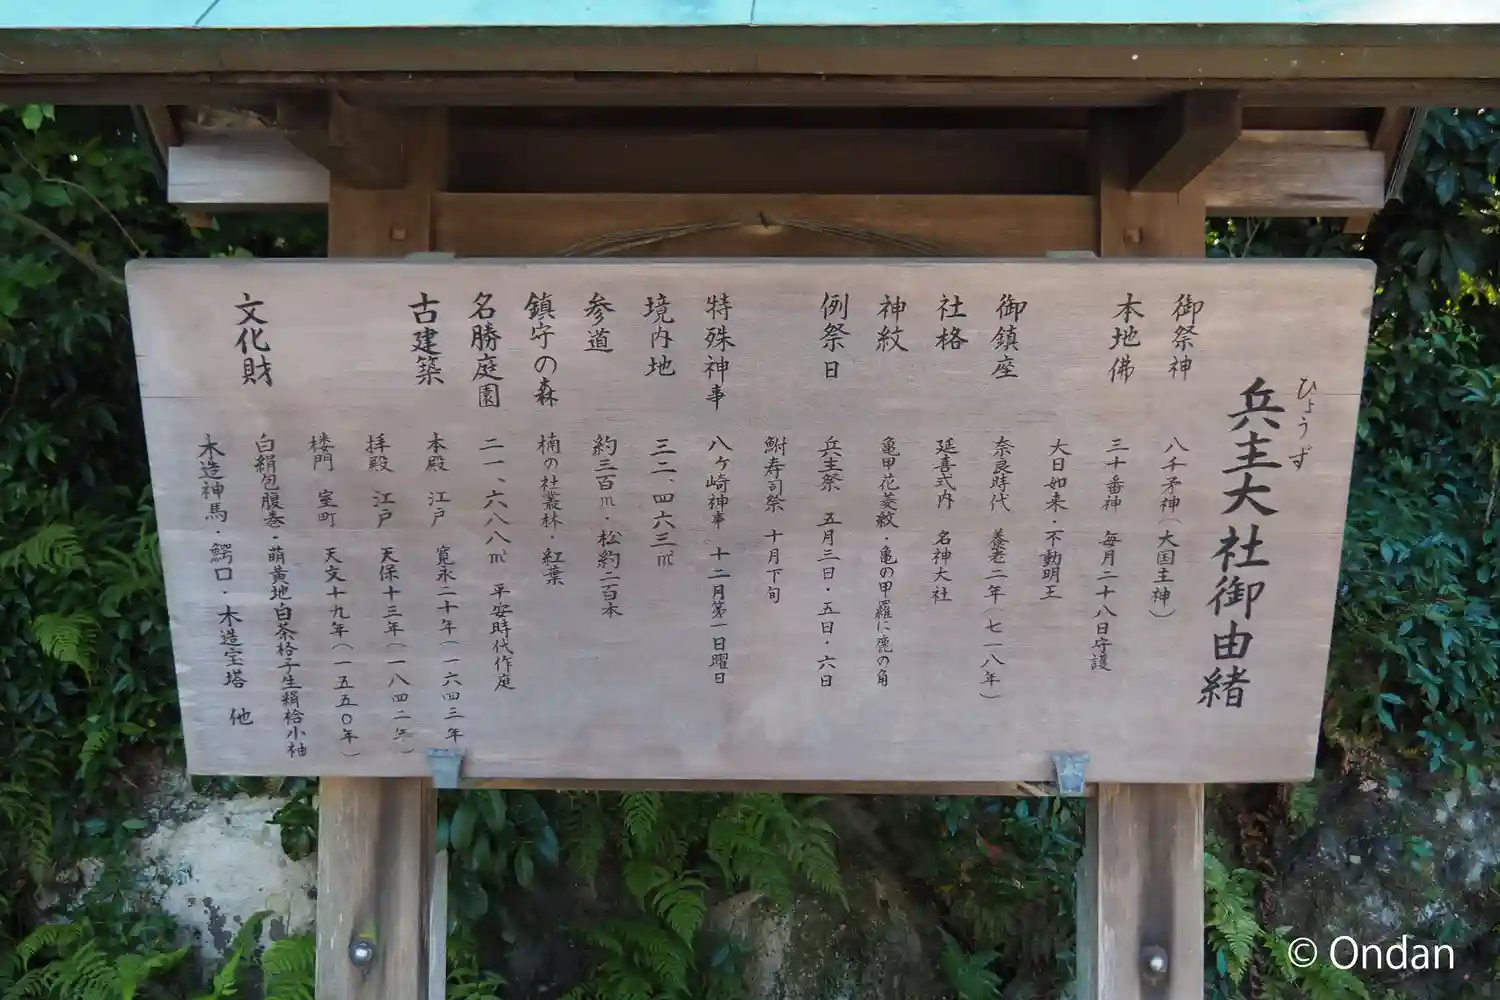 ひょうず
兵主大社御由緒
御祭神 八千矛神(大国主神)
本地佛 三十番神 毎月二十八日守護
大日如来・不動明王
御鎮座 奈良時代 養老二年(七一八年)
社格 延喜式内 名神大社
神紋 亀甲花菱紋・亀の甲羅に鹿の角
例祭日 兵主祭 五月三日・五日・六日
鮒寿司祭 十月下旬
特殊神事 八ヶ崎神事 十二月第一日曜日
境内地 三二、四六三㎡
参道 約三百m・松約二百本
鎮守の森 楠の社叢林・紅葉
名勝庭園 二一、六八八㎡ 平安時代作庭
古建築 本殿 江戸 寛永二十年(一六四三年
拝殿 江戸 天保十三年(一八四二年)
楼門 室町 天文十九年(一五五〇年)
文化財 白絹包腹巻・萌黄地白茶格子生絹袷小袖
木造神馬・鰐口・木造宝塔 他
© Ondan